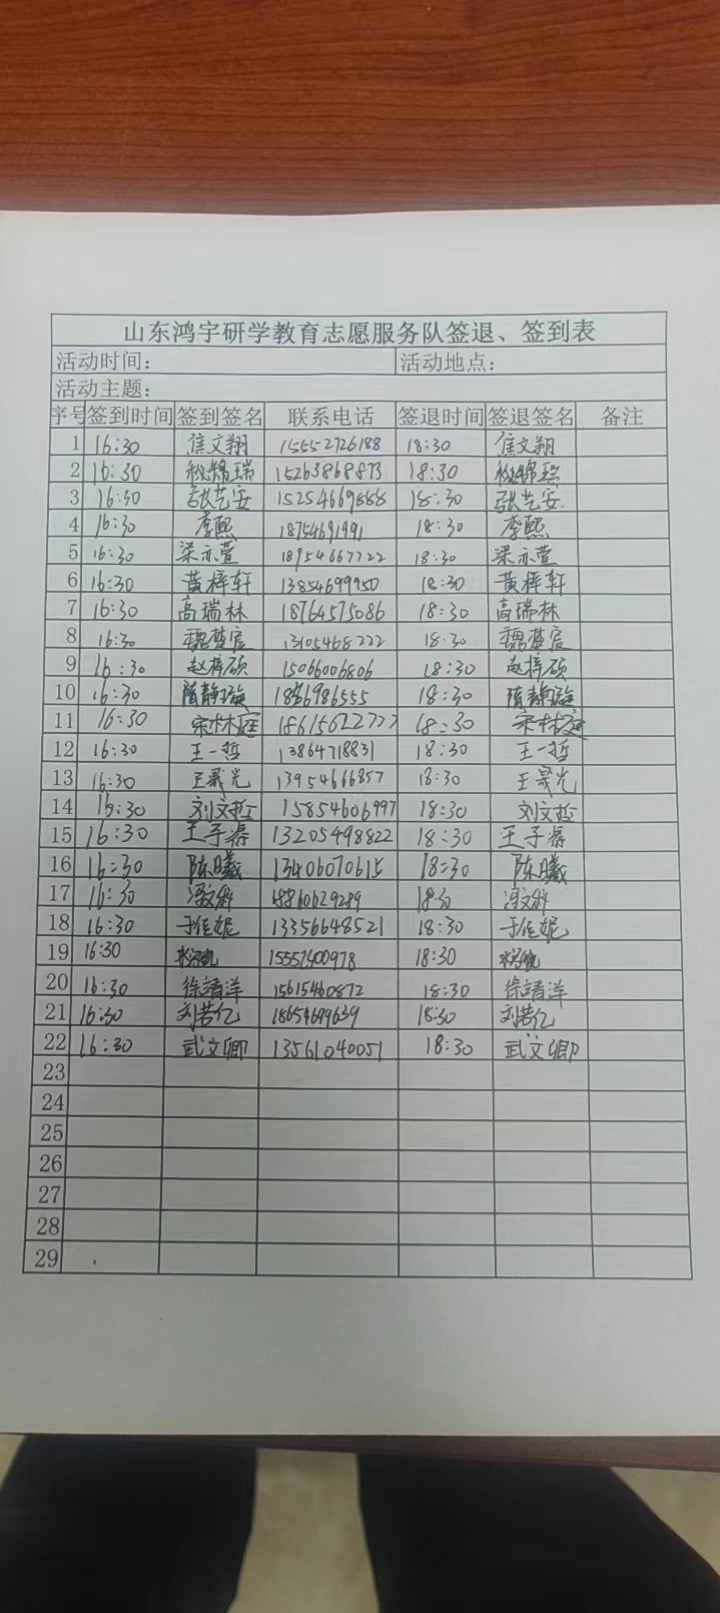 山东鸿宇研学教育志愿服务队签退、签到表
活动时间： 活动地点：
活动主题：
序号 签到时间 签到签名 联系电话 签退时间 签退签名 备注
1 16:30 焦文翔 15552726188 18:30 焦文翔
2 16:30 锦瑞 15263868873 18:30 锦瑞
3 16:30 张艺安 15254669888 18:30 张艺安
4 16:30 李熙 18754691991 18:30 李熙
5 16:30 梁亦萱 18954667722 18:30 梁亦萱
6 16:30 黄梓轩 13854699950 18:30 黄梓轩
7 16:30 高瑞林 18764575086 18:30 高瑞林
8 16:30 魏梦宸 13105468222 18:30 魏梦宸
9 16:30 赵梓硕 15066006806 18:30 赵梓硕
10 16:30 隋静璇 18:30 隋静璇
11 16:30 宋林庭 18615622777 18:30 宋林庭
12 16:30 王一哲 13864718831 18:30 王一哲
13 16:30 王晟光 13954666857 18:30 王晟光
14 16:30 刘文哲 15854606997 18:30 刘文哲
15 16:30 王子睿 13205498822 18:30 王子睿
16 16:30 陈曦 13406070615 18:30 陈曦
17 16:30 18:30
18 16:30 于佳妮 13356648521 18:30 于佳妮
19 16:30 15552400978 18:30
20 16:30 徐靖洋 15615460872 18:30 徐靖洋
21 16:30 刘若亿 18654699639 18:30 刘若亿
22 16:30 武文卿 13561040051 18:30 武文卿
23
24
25
26
27
28
29